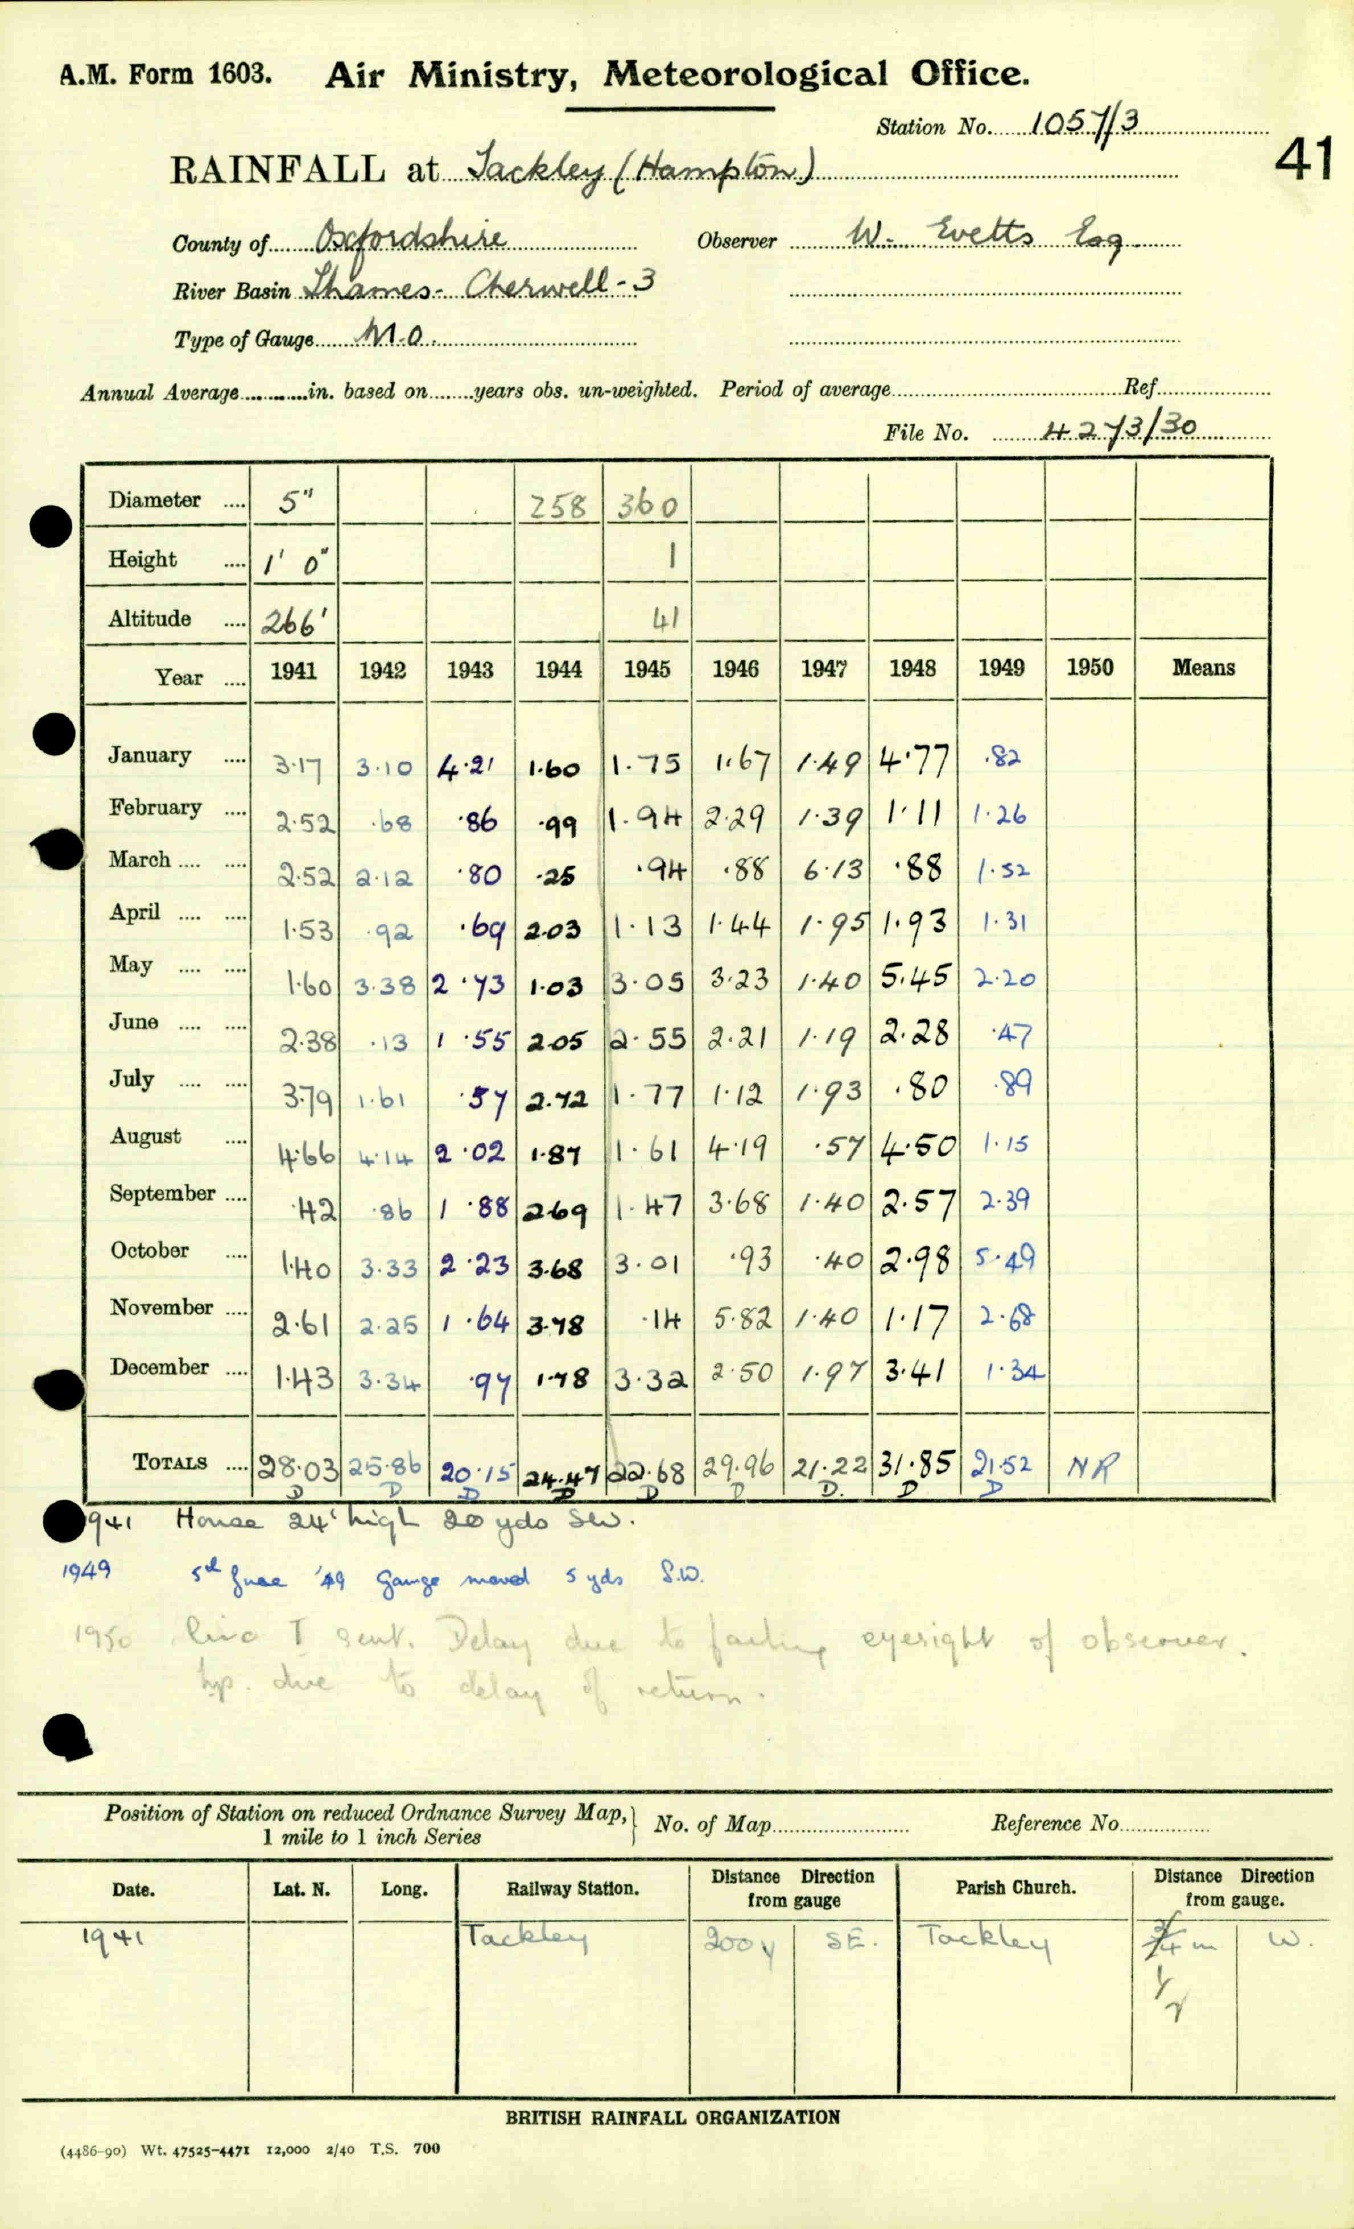 A.M. Form 1603. Air Ministry, Meteorological Office.
Station No. 1057/3
41
RAINFALL at Tackley (Hampton)
County of Oxfordshire Observer W. Evetts Esq.
River Basin Thames - Cherwell - 3
Type of Gauge M.O.
Annual Average in. based on years obs. un-weighted. Period of average Ref
File No. 4273/30
Diameter 5" 258 360
Height 1' 0" 1
Altitude 266' 41
Year 1941 1942 1943 1944 1945 1946 1947 1948 1949 1950 Means
January 3.17 3.10 4.21 1.60 1.75 1.67 1.49 4.77 .82
February 2.52 .68 .86 .99 1.94 2.29 1.39 1.11 1.26
March 2.52 2.12 .80 .25 .94 .88 6.13 .88 1.52
April 1.53 .92 .69 2.03 1.13 1.44 1.95 1.93 1.31
May 1.60 3.38 2.73 1.03 3.05 3.23 1.40 5.45 2.20
June 2.38 .13 1.55 2.05 2.55 2.21 1.19 2.28 .47
July 3.79 1.61 .57 2.72 1.77 1.12 1.93 .80 .89
August 4.66 4.14 2.02 1.87 1.61 4.19 .57 4.50 1.15
September .42 .86 1.88 2.69 1.47 3.68 1.40 2.57 2.39
October 1.40 3.33 2.23 3.68 3.01 .93 .40 2.98 5.49
November 2.61 2.25 1.64 3.78 .14 5.82 1.40 1.17 2.68
December 1.43 3.34 .97 1.78 3.32 2.50 1.97 3.41 1.34
TOTALS 28.03 25.86 20.15 24.47 22.68 29.96 21.22 31.85 21.52 NR
D D D D D D D. D D
1941 House 24' high 20 yds SW.
1949 5th June '49 Gauge moved 5 yds S.W.
1950 I sent. Delay due to failing eyesight of observer.
due to delay of return.
Position of Station on reduced Ordnance Survey Map, } No. of Map Reference No.
1 mile to 1 inch Series
Date. Lat. N. Long. Railway Station. Distance from gauge Direction Parish Church. Distance from gauge. Direction
1941 Tackley 200 y SE. Tackley 3/4 m W.
1/2
BRITISH RAINFALL ORGANIZATION
(4486-90) Wt. 47525-4471 12,000 2/40 T.S. 700